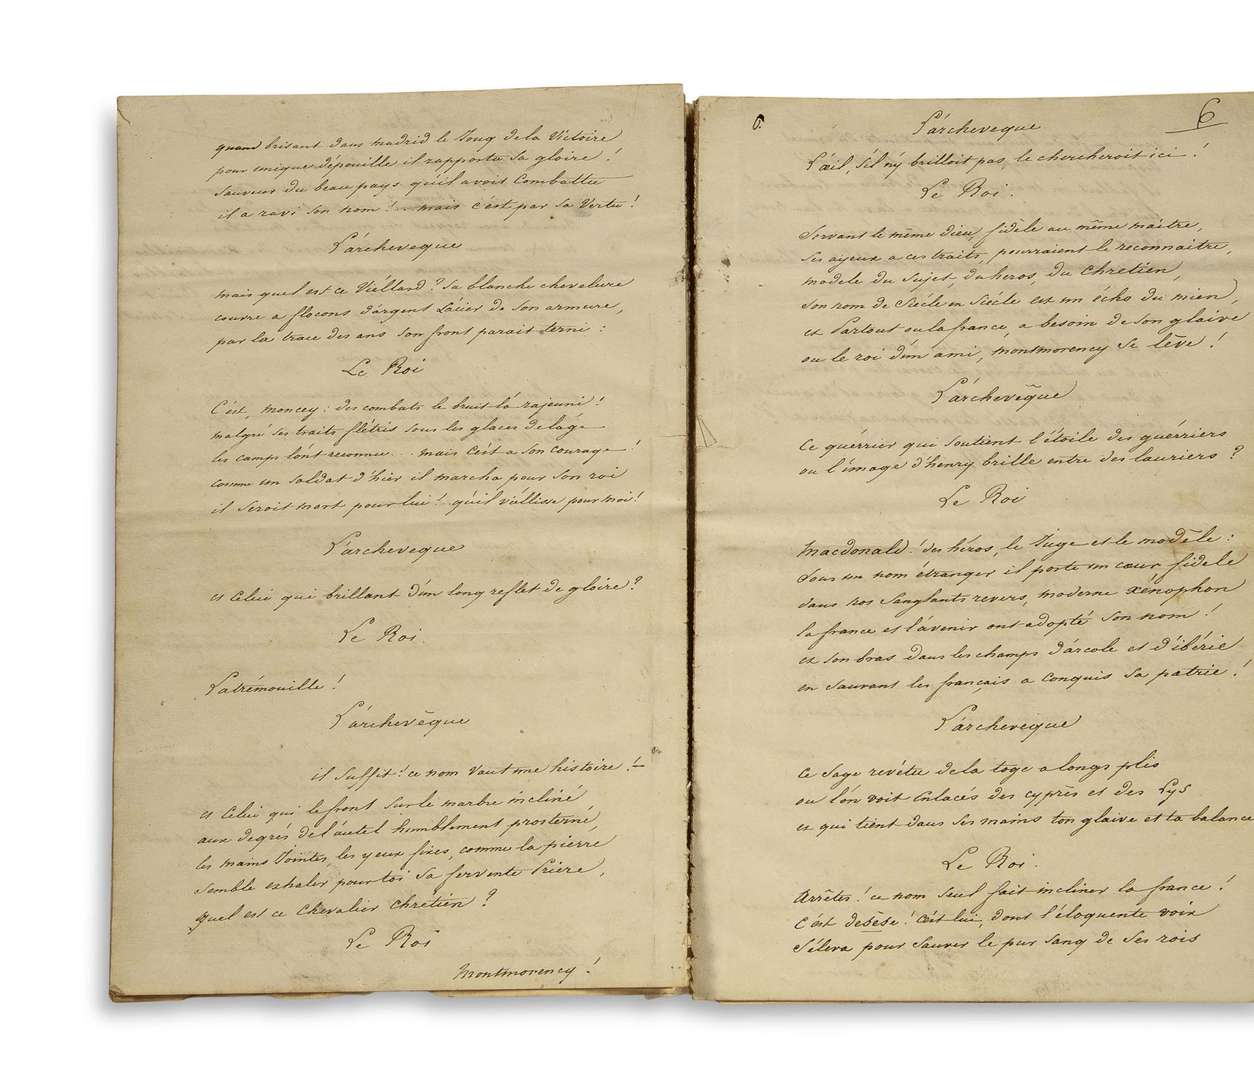 quand brisant dans madrid le Joug de la Victoire
pour unique dépouille il rapporta sa gloire !
Sauveur du beau pays qu'il avoit Combattu
il a ravi son nom ! .. mais c'est par sa Vertu !
L'archeveque
mais quel est ce Viéllard ? Sa blanche chevelure
couvre a flocons d'argent L'acier de son armure,
par la trace des ans son front parait terni :
Le Roi
C'est, moncey : des combats le bruit l'a rajeuni !
malgré ses traits flétris sous les glaces de l'age
les camps l'ont reconnu .. mais C'est a son courage !
comme un soldat d'hier il marcha pour son roi
il seroit mort pour lui ! qu'il viéllisse pour moi !
L'archeveque
et Celui qui brillant d'un long reflet de gloire ?
Le Roi.
Latrémouille !
L'archevêque
il Suffit ! ce nom Vaut une histoire ! —
et Celui qui le front sur le marbre incliné
aux degrés de l'autel humblement prosterné,
les mains Jointes, les yeux fixes, comme la pierre
Semble exhaler pour toi Sa fervente Prière,
quel est ce Chevalier Chrétien ?
Le Roi
Montmorency !
6. 6
L'archeveque
L'œil, S'il n'y brilloit pas, le chercheroit ici !
Le Roi.
Servant le même dieu, fidèle au même maitre,
Ses ayeux a ces traits, pourraient le reconnaitre,
modèle du Sujet, du heros, du Chrétien,
Son nom de Siècle en Siècle est un écho du mien,
et Partout ou la france, a besoin de son glaive
ou le roi d'un ami, montmorency se lève !
L'archevêque
Ce guérrier qui soutient l'étoile des guérriers
ou l'image d'henry brille entre des lauriers ?
Le Roi
Macdonald ! des héros, le Juge et le modèle :
Sous un nom étranger il porte un cœur fidele
dans nos Sanglants revers, moderne xénophon
la france et l'avenir ont adopté Son nom !
et son bras dans les champs d'arcole et d'ibérie
en sauvant les français a conquis sa patrie !
L'archeveque
Ce Sage revétu de la toge a longs plis
ou l'on voit Enlacés des cyprès et des Lys
et qui tient dans Ses mains ton glaive et ta balance
Le Roi.
Arrêtes ! ce nom Seul fait incliner la france !
C'est desèse ! C'est lui, dont l'éloquente voix
S'éleva pour sauver le pur sang de ses rois